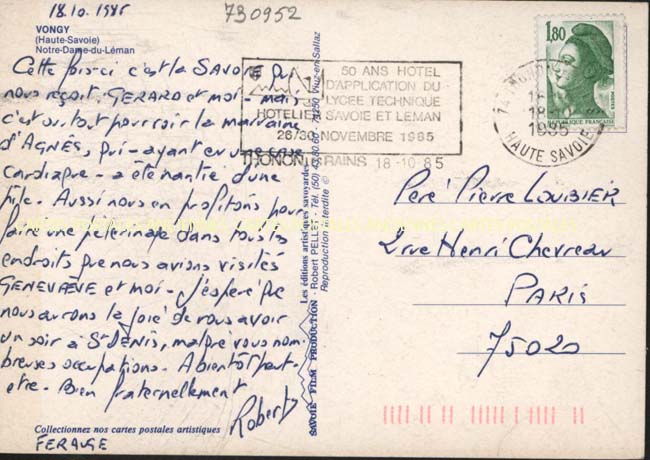 18.10.1985
730952
VONGY
(Haute-Savoie)
Notre-Dame-du-Léman
Cette fois-ci c'est la SAVOIE qui
nous reçoit. GERARD et moi - mais
c'est surtout pour voir la marraine
d'AGNÈS, qui - ayant eu une crise
cardiaque - a été chez une
fille. Aussi nous en profitons pour
faire une pèlerinage dans tous les
endroits que nous avions visités
GENEVIÈVE et moi - J'espère que
nous aurons la joie de vous avoir
un soir à St DENIS, malgré vos nom-
breuses occupations. A bientôt peut-
etre - Bien fraternellement
Robert
FERAUGE
Collectionnez nos cartes postales artistiques
Les éditions artistiques savoyardes
SAVOIE FILM PRODUCTION - Robert PELLET - Tél. (50) 74250 Viuz-en-Sallaz
Reproduction interdite ©
50 ANS HOTEL
D'APPLICATION DU
LYCEE TECHNIQUE
HOTELIER SAVOIE ET LEMAN
26/30 NOVEMBRE 1985
THONON BAINS 18-10-85
1,80
REPUBLIQUE FRANÇAISE
18-
1985
HAUTE SAVOIE
Père Pierre LOUBIER
2 rue Henri Chevreau
PARIS
75020